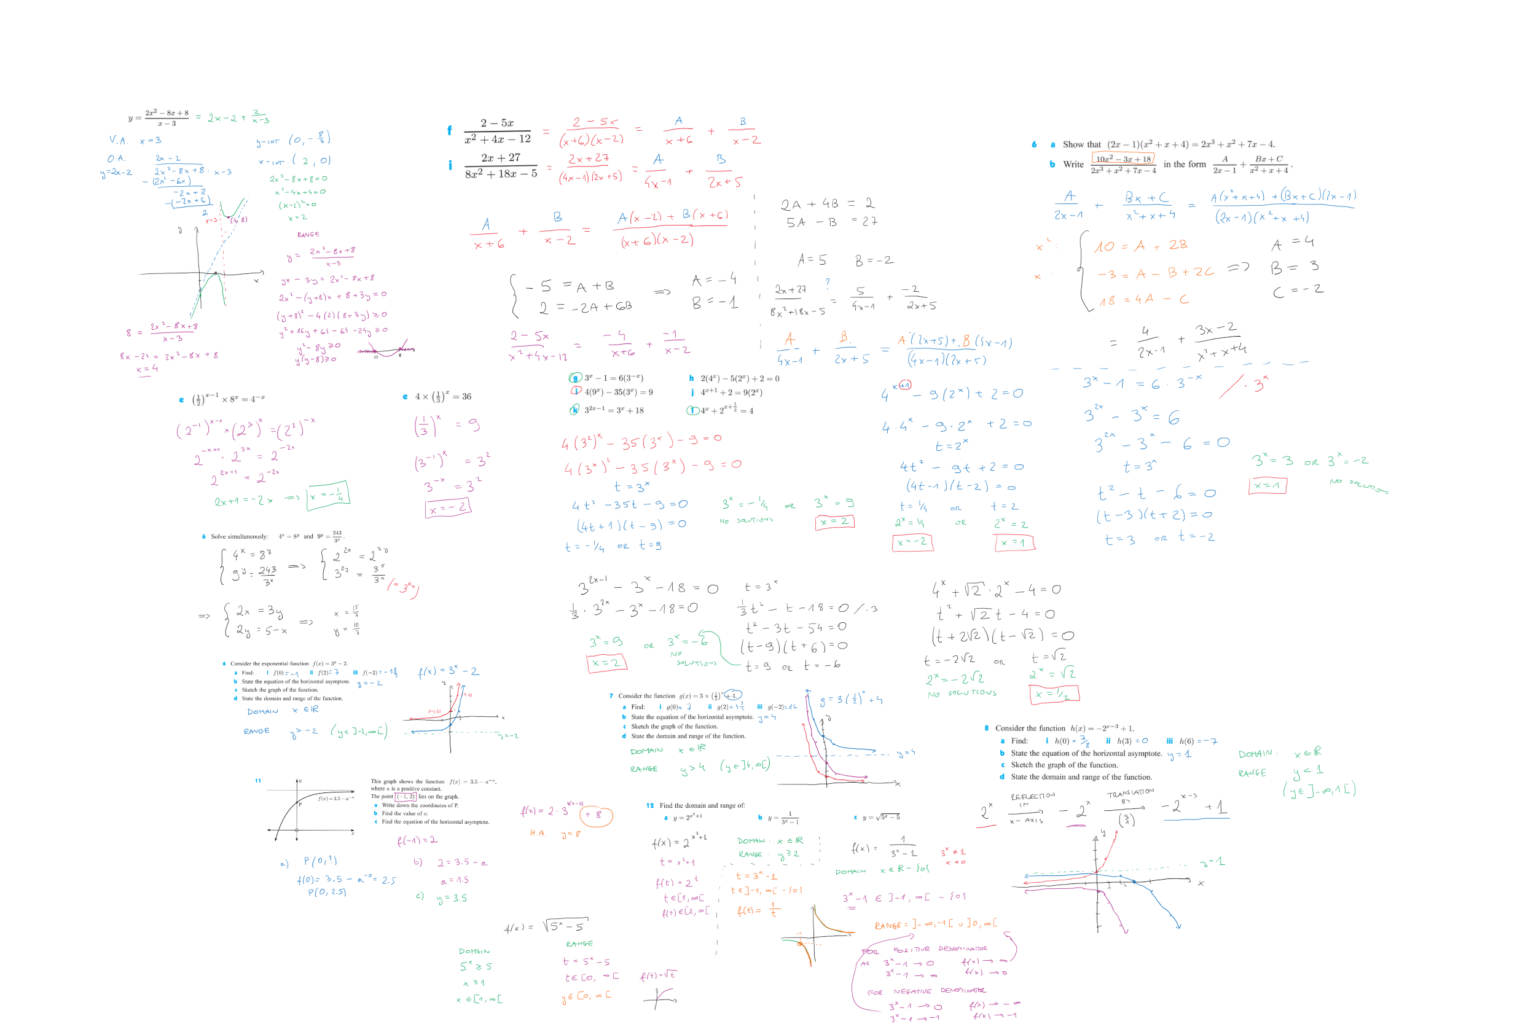 y = (2x² − 8x + 8)/(x − 3) = 2x − 2 + 2/(x−3)
V.A x = 3
y-INT (0, −8/3)
O.A.
y = 2x−2
x-INT (2, 0)
2x − 2
2x² − 8x + 8 x−3
−(2x² − 6x)
−2x + 8
−(−2x + 6)
2
2x² − 8x + 8 = 0
x² − 4x + 4 = 0
(x−2)² = 0
x = 2
x=3
(4,8)
y
x
RANGE
y = (2x² − 8x + 8)/(x−3)
yx − 3y = 2x² − 8x + 8
2x² − (y+8)x + 8 + 3y = 0
(y+8)² − 4(2)(8+3y) ≥ 0
y² + 16y + 64 − 64 − 24y ≥ 0
y² − 8y ≥ 0
y(y−8) ≥ 0
8 = (2x² − 8x + 8)/(x−3)
8x − 24 = 2x² − 8x + 8
x = 4
f (2 − 5x)/(x² + 4x − 12) = (2 − 5x)/((x+6)(x−2)) = A/(x+6) + B/(x−2)
i (2x + 27)/(8x² + 18x − 5) = (2x+27)/((4x−1)(2x+5)) = A/(4x−1) + B/(2x+5)
A/(x+6) + B/(x−2) = (A(x−2) + B(x+6))/((x+6)(x−2))
−5 = A + B
2 = −2A + 6B
=> A = −4
B = −1
(2 − 5x)/(x² + 4x − 12) = −4/(x+6) + −1/(x−2)
2A + 4B = 2
5A − B = 27
A = 5 B = −2
(2x+27)/(8x² + 18x − 5) ?= 5/(4x−1) + −2/(2x+5)
A/(4x−1) + B/(2x+5) = (A(2x+5) + B(4x−1))/((4x−1)(2x+5))
6 a Show that (2x − 1)(x² + x + 4) = 2x³ + x² + 7x − 4.
b Write (10x² − 3x + 18)/(2x³ + x² + 7x − 4) in the form A/(2x − 1) + (Bx + C)/(x² + x + 4).
A/(2x−1) + (Bx + C)/(x² + x + 4) = (A(x² + x + 4) + (Bx + C)(2x−1))/((2x−1)(x² + x + 4))
x²: 10 = A + 2B
x: −3 = A − B + 2C
18 = 4A − C
=> A = 4
B = 3
C = −2
= 4/(2x−1) + (3x − 2)/(x² + x + 4)
e (½)ˣ⁻¹ × 8ˣ = 4⁻ˣ
2x + 1 = −2x => x = −1/4
e 4 × (⅓)ˣ = 36
(1/3)ˣ = 9
(3⁻¹)ˣ = 3²
3⁻ˣ = 3²
x = −2
g 3ˣ − 1 = 6(3⁻ˣ) h 2(4ˣ) − 5(2ˣ) + 2 = 0
i 4(9ˣ) − 35(3ˣ) = 9 j 4ˣ⁺¹ + 2 = 9(2ˣ)
k 3²ˣ⁻¹ = 3ˣ + 18 l 4ˣ + 2^(x+½) = 4
4(3²)ˣ − 35(3ˣ) − 9 = 0
4(3ˣ)² − 35(3ˣ) − 9 = 0
t = 3ˣ
4t² − 35t − 9 = 0
(4t+1)(t−9) = 0
t = −1/4 OR t = 9
3ˣ = −1/4 OR 3ˣ = 9
NO SOLUTIONS x = 2
4ˣ⁺¹ − 9(2ˣ) + 2 = 0
4·4ˣ − 9·2ˣ + 2 = 0
t = 2ˣ
4t² − 9t + 2 = 0
(4t−1)(t−2) = 0
t = 1/4 OR t = 2
2ˣ = 1/4 OR 2ˣ = 2
x = −2 x = 1
3ˣ − 1 = 6·3⁻ˣ /·3ˣ
3²ˣ − 3ˣ = 6
3²ˣ − 3ˣ − 6 = 0
t = 3ˣ
t² − t − 6 = 0
(t−3)(t+2) = 0
t = 3 OR t = −2
3ˣ = 3 OR 3ˣ = −2
x = 1 NO SOLUTIONS
6 Solve simultaneously: 4ˣ = 8ʸ and 9ʸ = 243/3ˣ.
4ˣ = 8ʸ
9ʸ = 243/3ˣ
=> 2²ˣ = 2³ʸ
3²ʸ = 3⁵/3ˣ (= 3⁵⁻ˣ)
=> 2x = 3y
2y = 5 − x
=> x = 15/7
y = 10/7
3²ˣ⁻¹ − 3ˣ − 18 = 0
1/3 · 3²ˣ − 3ˣ − 18 = 0
3ˣ = 9 OR 3ˣ = −6
x = 2 NO SOLUTIONS
t = 3ˣ
1/3 t² − t − 18 = 0 /·3
t² − 3t − 54 = 0
(t−9)(t+6) = 0
t = 9 OR t = −6
4ˣ + √2·2ˣ − 4 = 0
t² + √2 t − 4 = 0
(t + 2√2)(t − √2) = 0
t = −2√2 OR t = √2
2ˣ = −2√2 2ˣ = √2
NO SOLUTIONS x = 1/2
6 Consider the exponential function f(x) = 3ˣ − 2.
a Find: i f(0) = −1 ii f(2) = 7 iii f(−2)
b State the equation of the horizontal asymptote. y = −2
c Sketch the graph of the function.
d State the domain and range of the function.
DOMAIN x ∈ ℝ
RANGE y > −2
f(x) = 3ˣ − 2
y = −2
7 Consider the function g(x) = 3 × (½)ˣ + 4.
a Find: i g(0) = 7 ii g(2) iii g(−2) = 16
b State the equation of the horizontal asymptote. y = 4
c Sketch the graph of the function.
d State the domain and range of the function.
DOMAIN x ∈ ℝ
RANGE y > 4 (y ∈ ]4, ∞[)
y = 3(½)ˣ + 4
y = 4
8 Consider the function h(x) = −2ˣ⁻³ + 1.
a Find: i h(0) = 7/8 ii h(3) = 0 iii h(6) = −7
b State the equation of the horizontal asymptote. y = 1
c Sketch the graph of the function.
d State the domain and range of the function.
DOMAIN: x ∈ ℝ
RANGE y < 1
(y ∈ ]−∞, 1[)
2ˣ REFLECTION IN X-AXIS −2ˣ TRANSLATION BY (3 1) −2ˣ⁻³ + 1
y = 1
11 This graph shows the function f(x) = 3.5 − a⁻ˣ,
where a is a positive constant.
The point (−1, 2) lies on the graph.
a Write down the coordinates of P.
b Find the value of a.
c Find the equation of the horizontal asymptote.
f(x) = 3.5 − a⁻ˣ
P
a) P(0, ?)
f(0) = 3.5 − a⁻⁰ = 2.5
P(0, 2.5)
f(−1) = 2
b) 2 = 3.5 − a
a = 1.5
c) y = 3.5
H.A. y = 8
12 Find the domain and range of:
a y = 2^(x²+1) b y = 1/(3ˣ − 1) c y = √(5ˣ − 5)
f(x) = 2^(x²+1)
t = x² + 1
f(t) = 2ᵗ
t ∈ [1, ∞[
f(t) ∈ [2, ∞[
DOMAIN: x ∈ ℝ
RANGE y ≥ 2
t = 3ˣ − 1
t ∈ ]−1, ∞[ − {0}
f(t) = 1/t
f(x) = 1/(3ˣ − 1)
3ˣ ≠ 1
x ≠ 0
DOMAIN x ∈ ℝ − {0}
3ˣ − 1 ∈ ]−1, ∞[ − {0}
RANGE = ]−∞, −1[ ∪ ]0, ∞[
FOR POSITIVE DENOMINATOR
AS 3ˣ − 1 → 0 f(x) → ∞
3ˣ − 1 → ∞ f(x) → 0
FOR NEGATIVE DENOMINATOR
3ˣ − 1 → 0 f(x) → −∞
3ˣ − 1 → −1 f(x) → −1
f(x) = √(5ˣ − 5)
DOMAIN
5ˣ ≥ 5
x ≥ 1
x ∈ [1, ∞[
RANGE
t = 5ˣ − 5
t ∈ [0, ∞[
y ∈ [0, ∞[
f(t) = √t